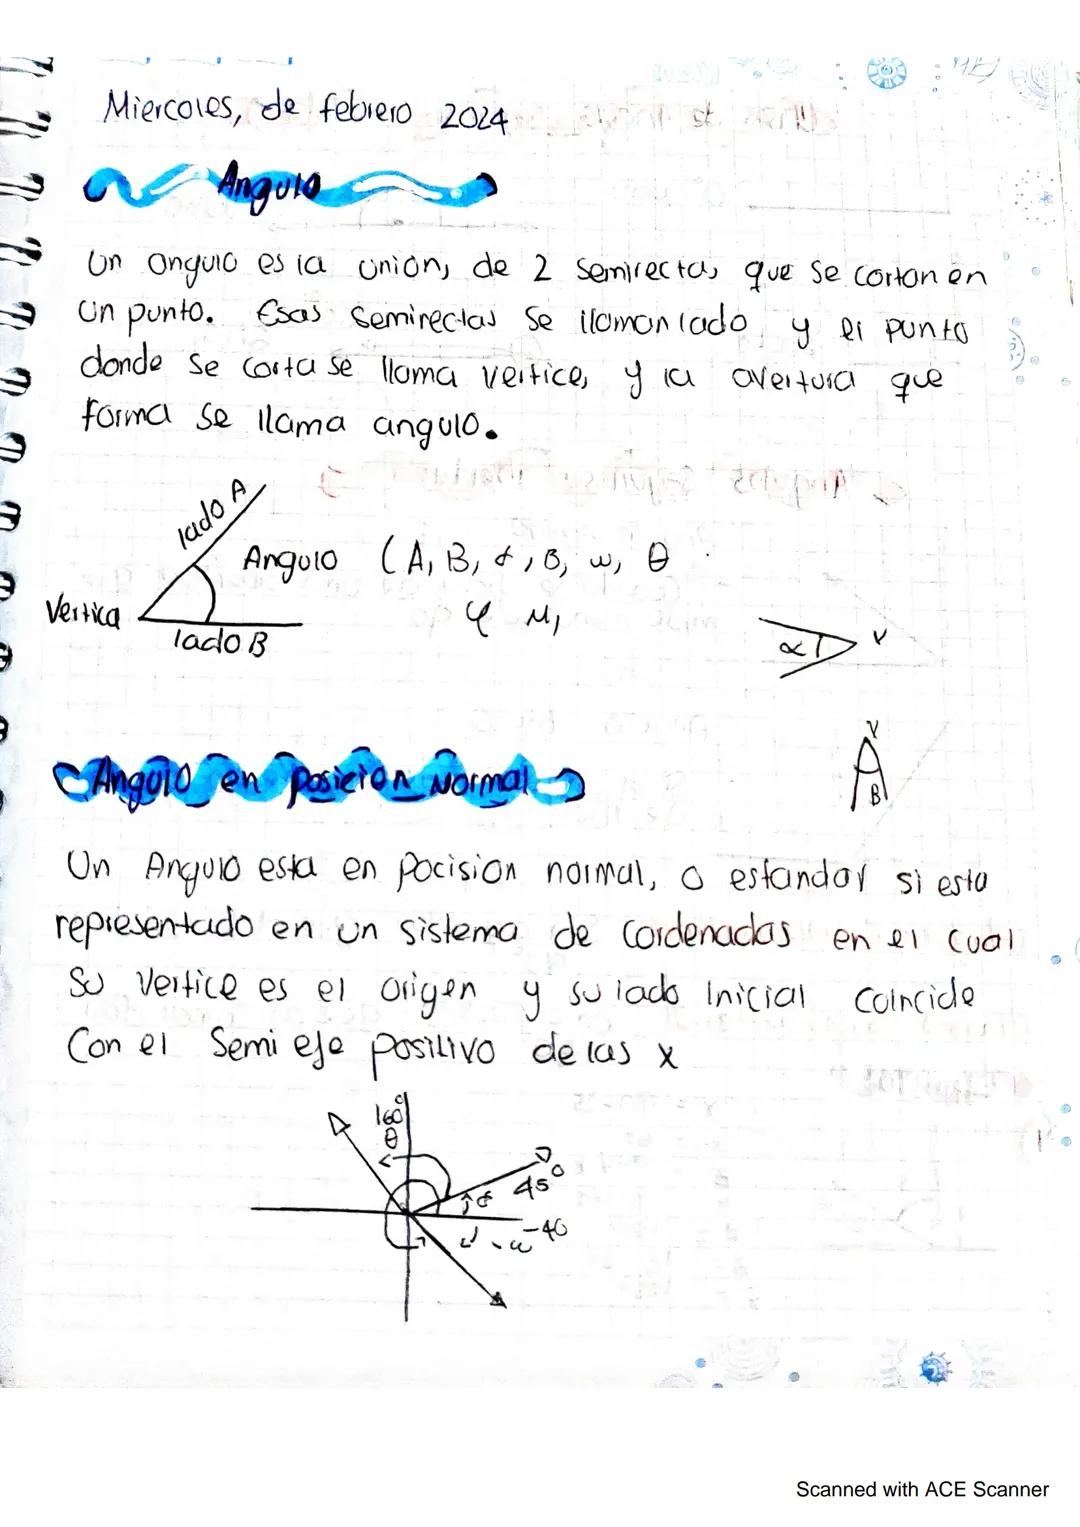 Miercoles, de febrero 2024
Angulo
Un angulo es la union, de 2 semirectas que se cortan en
un punto. Esas semirectas se llaman lado y el punto
donde se corta se llama vertice, y la avertura que
forma se llama angulo.
lado A
Angulo (A, B, α, B, w, θ
φ μ,
Vertica
lado B
α V
V
B
Angulo en posicion Normal
Un Angulo esta en Pocision normal, o estandar si esta
representado en un sistema de Cordenadas en el cual
su vertice es el origen y su lado Inicial coincide
Con el Semi eje positivo de las x
160°
θ
45°
-40
Scanned with ACE Scanner